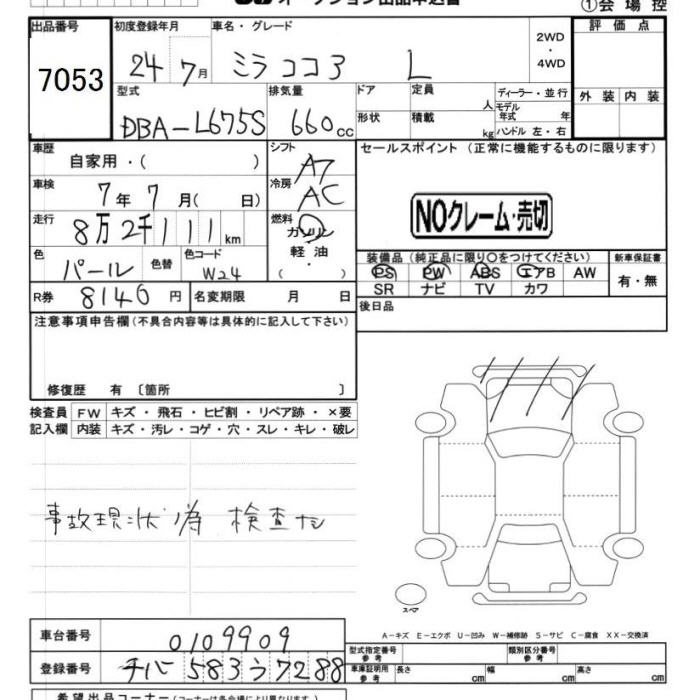 オークション出品申込書
①会場控
出品番号
7053
初度登録年月
24年7月
車名・グレード
ミラココア L
2WD・4WD
評価点
外装 内装
型式
DBA-L675S
排気量
660cc
ドア
形状
定員 人
積載 kg
ディーラー・並行
モデル年式 年
ハンドル 左・右
車歴
自家用・( )
シフト
A7
セールスポイント (正常に機能するものに限ります)
NOクレーム・売切
車検
7年7月( 日)
冷房
AC
走行
8万2千111km
燃料
ガソリン
軽油
( ・ )
色
パール
色替
色コード
W24
装備品 (純正品に限り○をつけてください)
PS PW ABS エアB AW
SR ナビ TV カワ
新車保証書
有・無
R券
8140円
名変期限 月 日
後日品
注意事項申告欄(不具合内容等は具体的に記入して下さい)
修復歴 有 〔箇所 〕
検査員記入欄
FW キズ・飛石・ヒビ割・リペア跡・×要
内装 キズ・汚レ・コゲ・穴・スレ・キレ・破レ
事故現状為 検査ナシ
スペア
A-キズ E-エクボ U-凹み W-補修跡 S-サビ C-腐食 XX-交換済
車台番号
0109909
登録番号
チバ 583 う 7288
型式指定番号 参考
類別区分番号 参考
車庫証明用 参考
長さ cm 幅 cm 高さ cm
希望出品コーナー(コーナーは各会場により異なります)